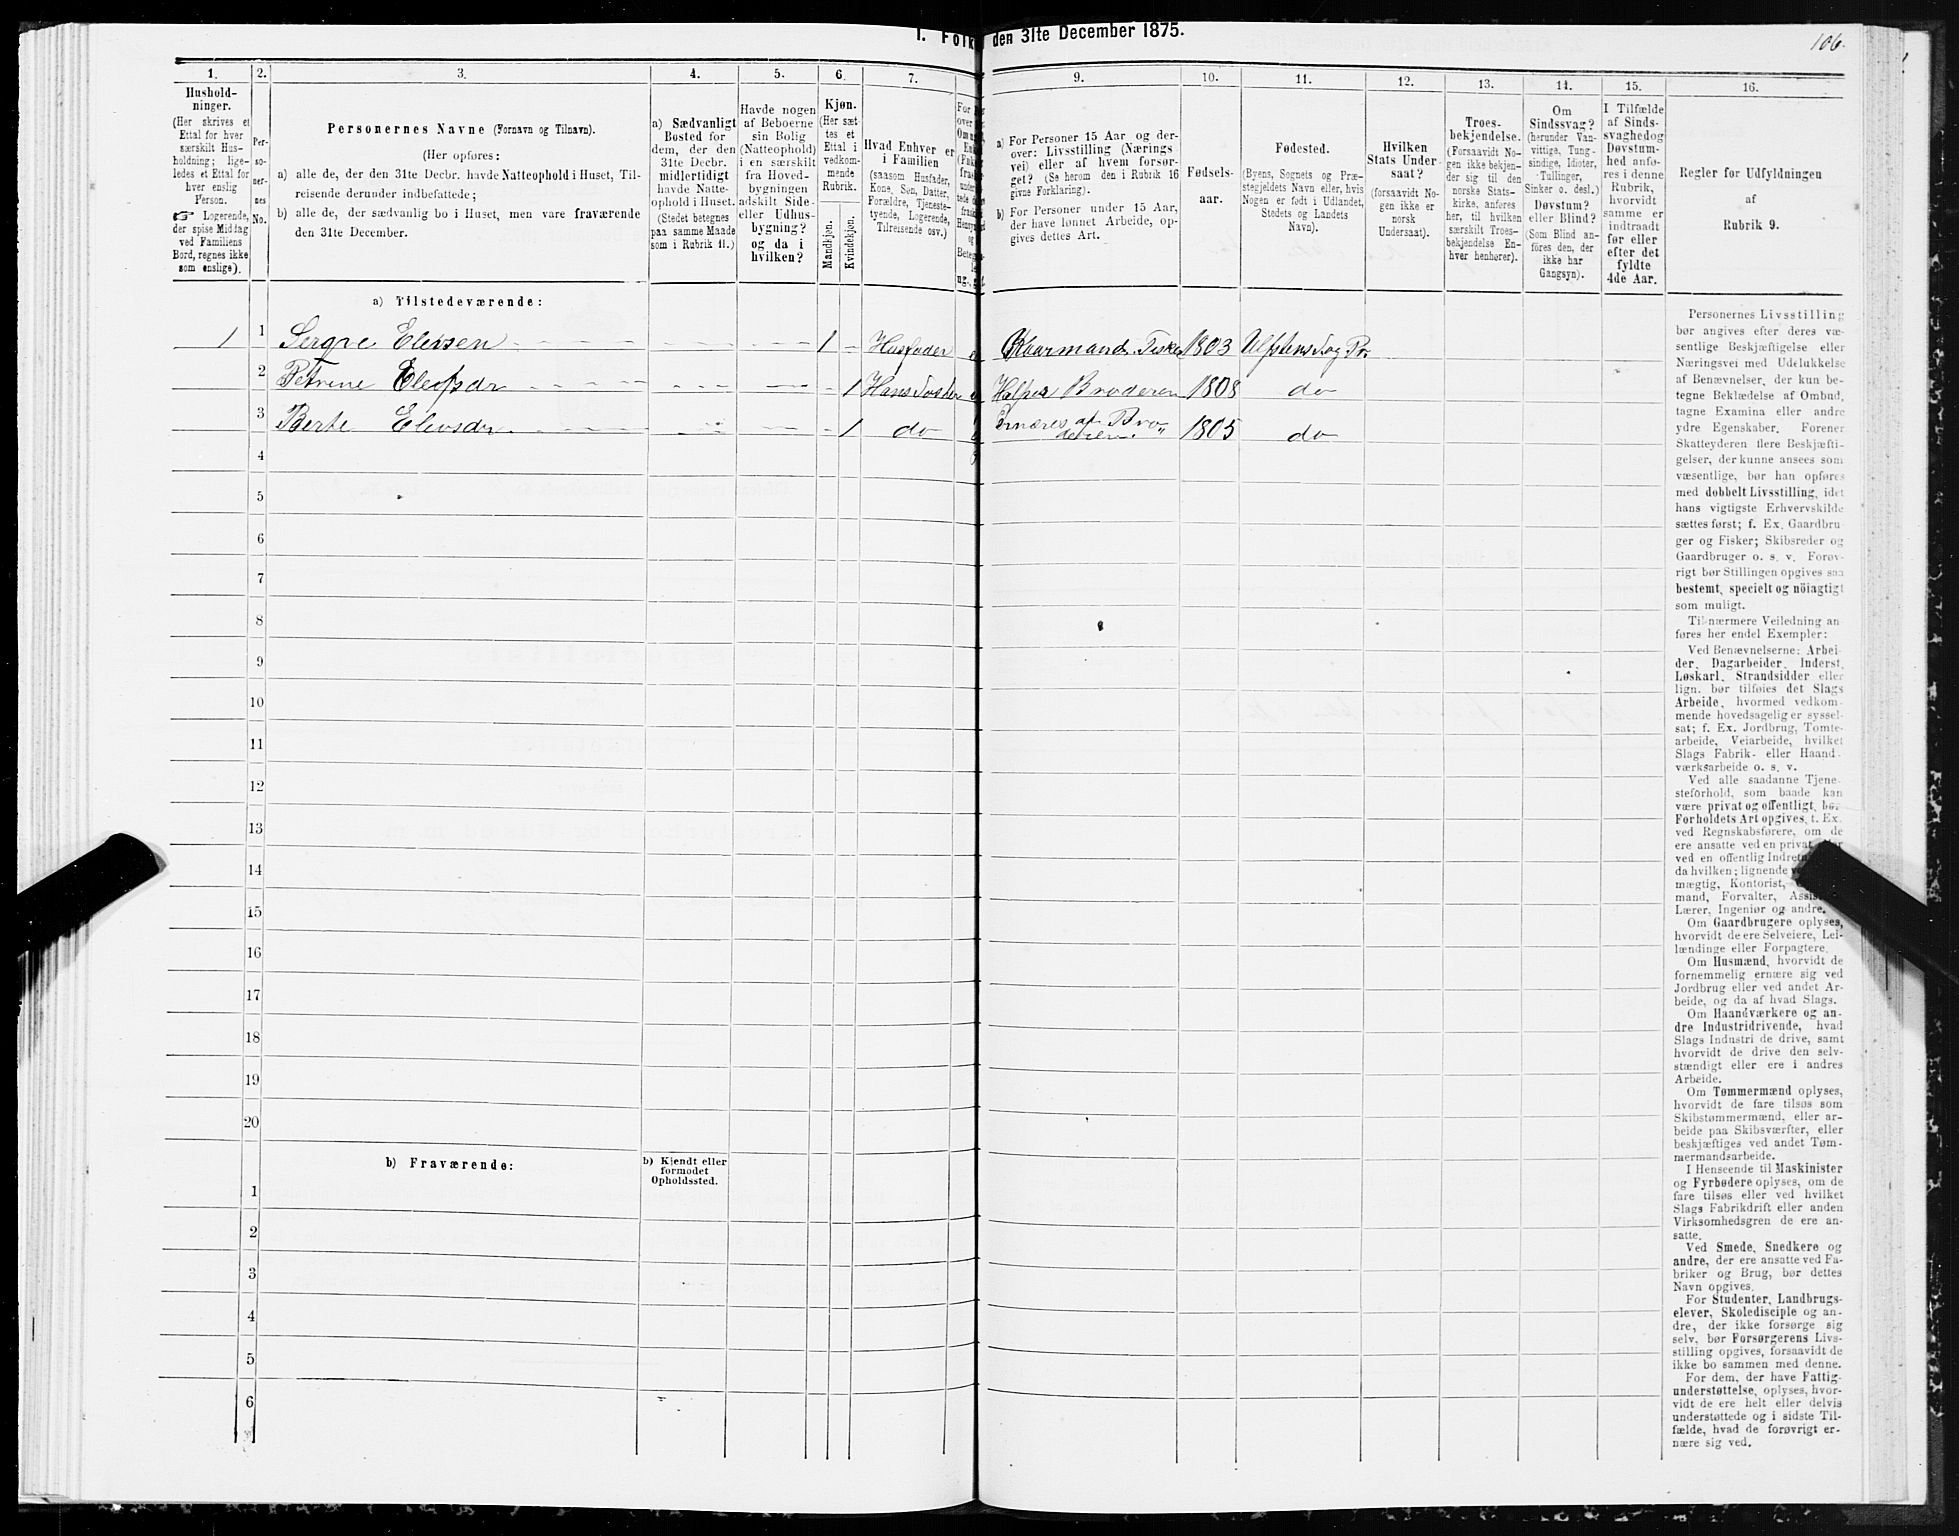 I. Folk den 31te December 1875.
106.
1. 2. 3. 4. 5. 6. 7. 9. 10. 11. 12. 13. 14. 15. 16.
Hushold-
ninger.
(Her skrives et
Ettal for hver
særskilt Hus-
holdning; lige-
ledes et Ettal for
hver enslig
Person.
☞ Logerende,
der spise Middag
ved Familiens
Bord, regnes ikke
som enslige).
Per-
so-
ner-
nes
No.
Personernes Navne (Fornavn og Tilnavn).
(Her opføres:
a) alle de, der den 31te Decbr. havde Natteophold i Huset, Til-
reisende derunder indbefattede;
b) alle de, der sædvanlig bo i Huset, men vare fraværende
den 31te December.
a) Sædvanligt
Bosted for
dem, der den
31te Decbr.
midlertidigt
havde Natte-
ophold i Huset.
(Stedet betegnes
paa samme Maade
som i Rubrik 11.)
Havde nogen
af Beboerne
sin Bolig
(Natteophold)
i en særskilt
fra Hoved-
bygningen
adskilt Side-
eller Udhus-
bygning?
og da i
hvilken?
Kjøn.
(Her sæt-
tes et
Ettal i
vedkom-
mende
Rubrik.
Mandkjøn.
Kvindekjøn.
Hvad Enhver er
i Familien
(saasom Husfader,
Kone, Søn, Datter,
Forældre, Tjeneste-
tyende, Logerende,
Tilreisende osv.)
a) For Personer 15 Aar og der-
over: Livsstilling (Nærings-
vei) eller af hvem forsør-
get? (Se herom den i Rubrik 16
givne Forklaring).
b) For Personer under 15 Aar,
der have lønnet Arbeide, op-
gives dettes Art.
Fødsels-
aar.
Fødested.
(Byens, Sognets og Præ-
stegjeldets Navn eller, hvis
Nogen er født i Udlandet,
Stedets og Landets
Navn).
Hvilken
Stats Under-
saat?
(forsaavidt No-
gen ikke er
norsk
Undersaat).
Troes-
bekjendelse.
(Forsaavidt No-
gen ikke bekjen-
der sig til den
norske Stats-
kirke, anføres
her, til hvilken
særskilt Troes-
bekjendelse En-
hver henhører).
Om
Sindssvag?
(herunder Van-
vittige, Tung-
sindige, Idioter,
Tullinger,
Sinker o. desl.)
Døvstum?
eller Blind?
(Som Blind an-
føres den, der
ikke har
Gangsyn).
I Tilfælde
af Sinds-
svaghedog
Døvstum-
hed anfø-
res i denne
Rubrik,
hvorvidt
samme er
indtraadt
før eller
efter det
fyldte
4de Aar.
Regler for Udfyldningen
af
Rubrik 9.
a) Tilstedeværende:
1 1 Elevsen 1 Husfader 1803
2 Petrine 1 1808 do
3 Berte Elevsdr 1 do 1805 do
4
5
6
7
8
9
10
11
12
13
14
15
16
17
18
19
20
b) Fraværende:
b) Kjendt eller
formodet
Opholdssted.
1
2
3
4
5
6
Personernes Livsstilling
bør angives efter deres væ-
sentlige Beskjæftigelse eller
Næringsvei med Udelukkelse
af Benævnelser, der kun be-
tegne Beklædelse af Ombud,
tagne Examina eller andre
ydre Egenskaber. Forener
Skatteyderen flere Beskjæfti-
gelser, der kunne ansees som
væsentlige, bør han opføres
med dobbelt Livsstilling, idet
hans vigtigste Erhvervskilde
sættes først; f. Ex. Gaardbru-
ger og Fisker; Skibsreder og
Gaardbruger o. s. v. Forøv-
rigt bør Stillingen opgives saa
bestemt, specielt og nöiagtigt
som muligt.
Til nærmere Veiledning an-
føres her endel Exempler:
Ved Benævnelserne: Arbei-
der, Dagarbeider, Inderst,
Løskarl, Strandsidder eller
lign. bør tilføies det Slags
Arbeide, hvormed vedkom-
mende hovedsagelig er syssel-
sat; f. Ex. Jordbrug, Tomte-
arbeide, Veiarbeide, hvilket
Slags Fabrik- eller Haand-
værksarbeide o. s. v.
Ved alle saadanne Tjene-
steforhold, som baade kan
være privat og offentligt, bør
Forholdets Art opgives, t. Ex.
ved Regnskabsførere, om de
ere ansatte ved en privat
ved en offentlig
da hvilken; lignende
mægtig, Kontorist,
mand, Forvalter,
Lærer, Ingeniør og andre.
Om Gaardbrugere oplyses,
hvorvidt de ere Selveiere, Lei-
lændinge eller Forpagtere.
Om Husmænd, hvorvidt de
fornemmelig ernære sig ved
Jordbrug eller ved andet Ar-
beide, og da af hvad Slags.
Om Haandværkere og an-
dre Industridrivende, hvad
Slags Industri de drive, samt
hvorvidt de drive den selv-
stændigt eller ere i andres
Arbeide.
Om Tømmermænd oplyses,
hvorvidt de fare tilsøs som
Skibstømmermænd, eller ar-
beide paa Skibsværfter, eller
beskjæftiges ved andet Tøm-
mermandsarbeide.
I Henseende til Maskinister
og Fyrbødere oplyses, om de
fare tilsøs eller ved hvilket
Slags Fabrikdrift eller anden
Virksomhedsgren de ere an-
satte.
Ved Smede, Snedkere og
andre, der ere ansatte ved Fa-
briker og Brug, bør dettes
Navn opgives.
For Studenter, Landbrugs-
elever, Skoledisciple og an-
dre, der ikke forsørge sig
selv, bør Forsørgerens Livs-
stilling opgives, forsaavidt de
ikke bo sammen med denne.
For dem, der have Fattig-
understøttelse, oplyses, hvor-
vidt de ere helt eller delvis
understøttede og i sidste Til-
fælde, hvad de forøvrigt er-
nære sig ved.